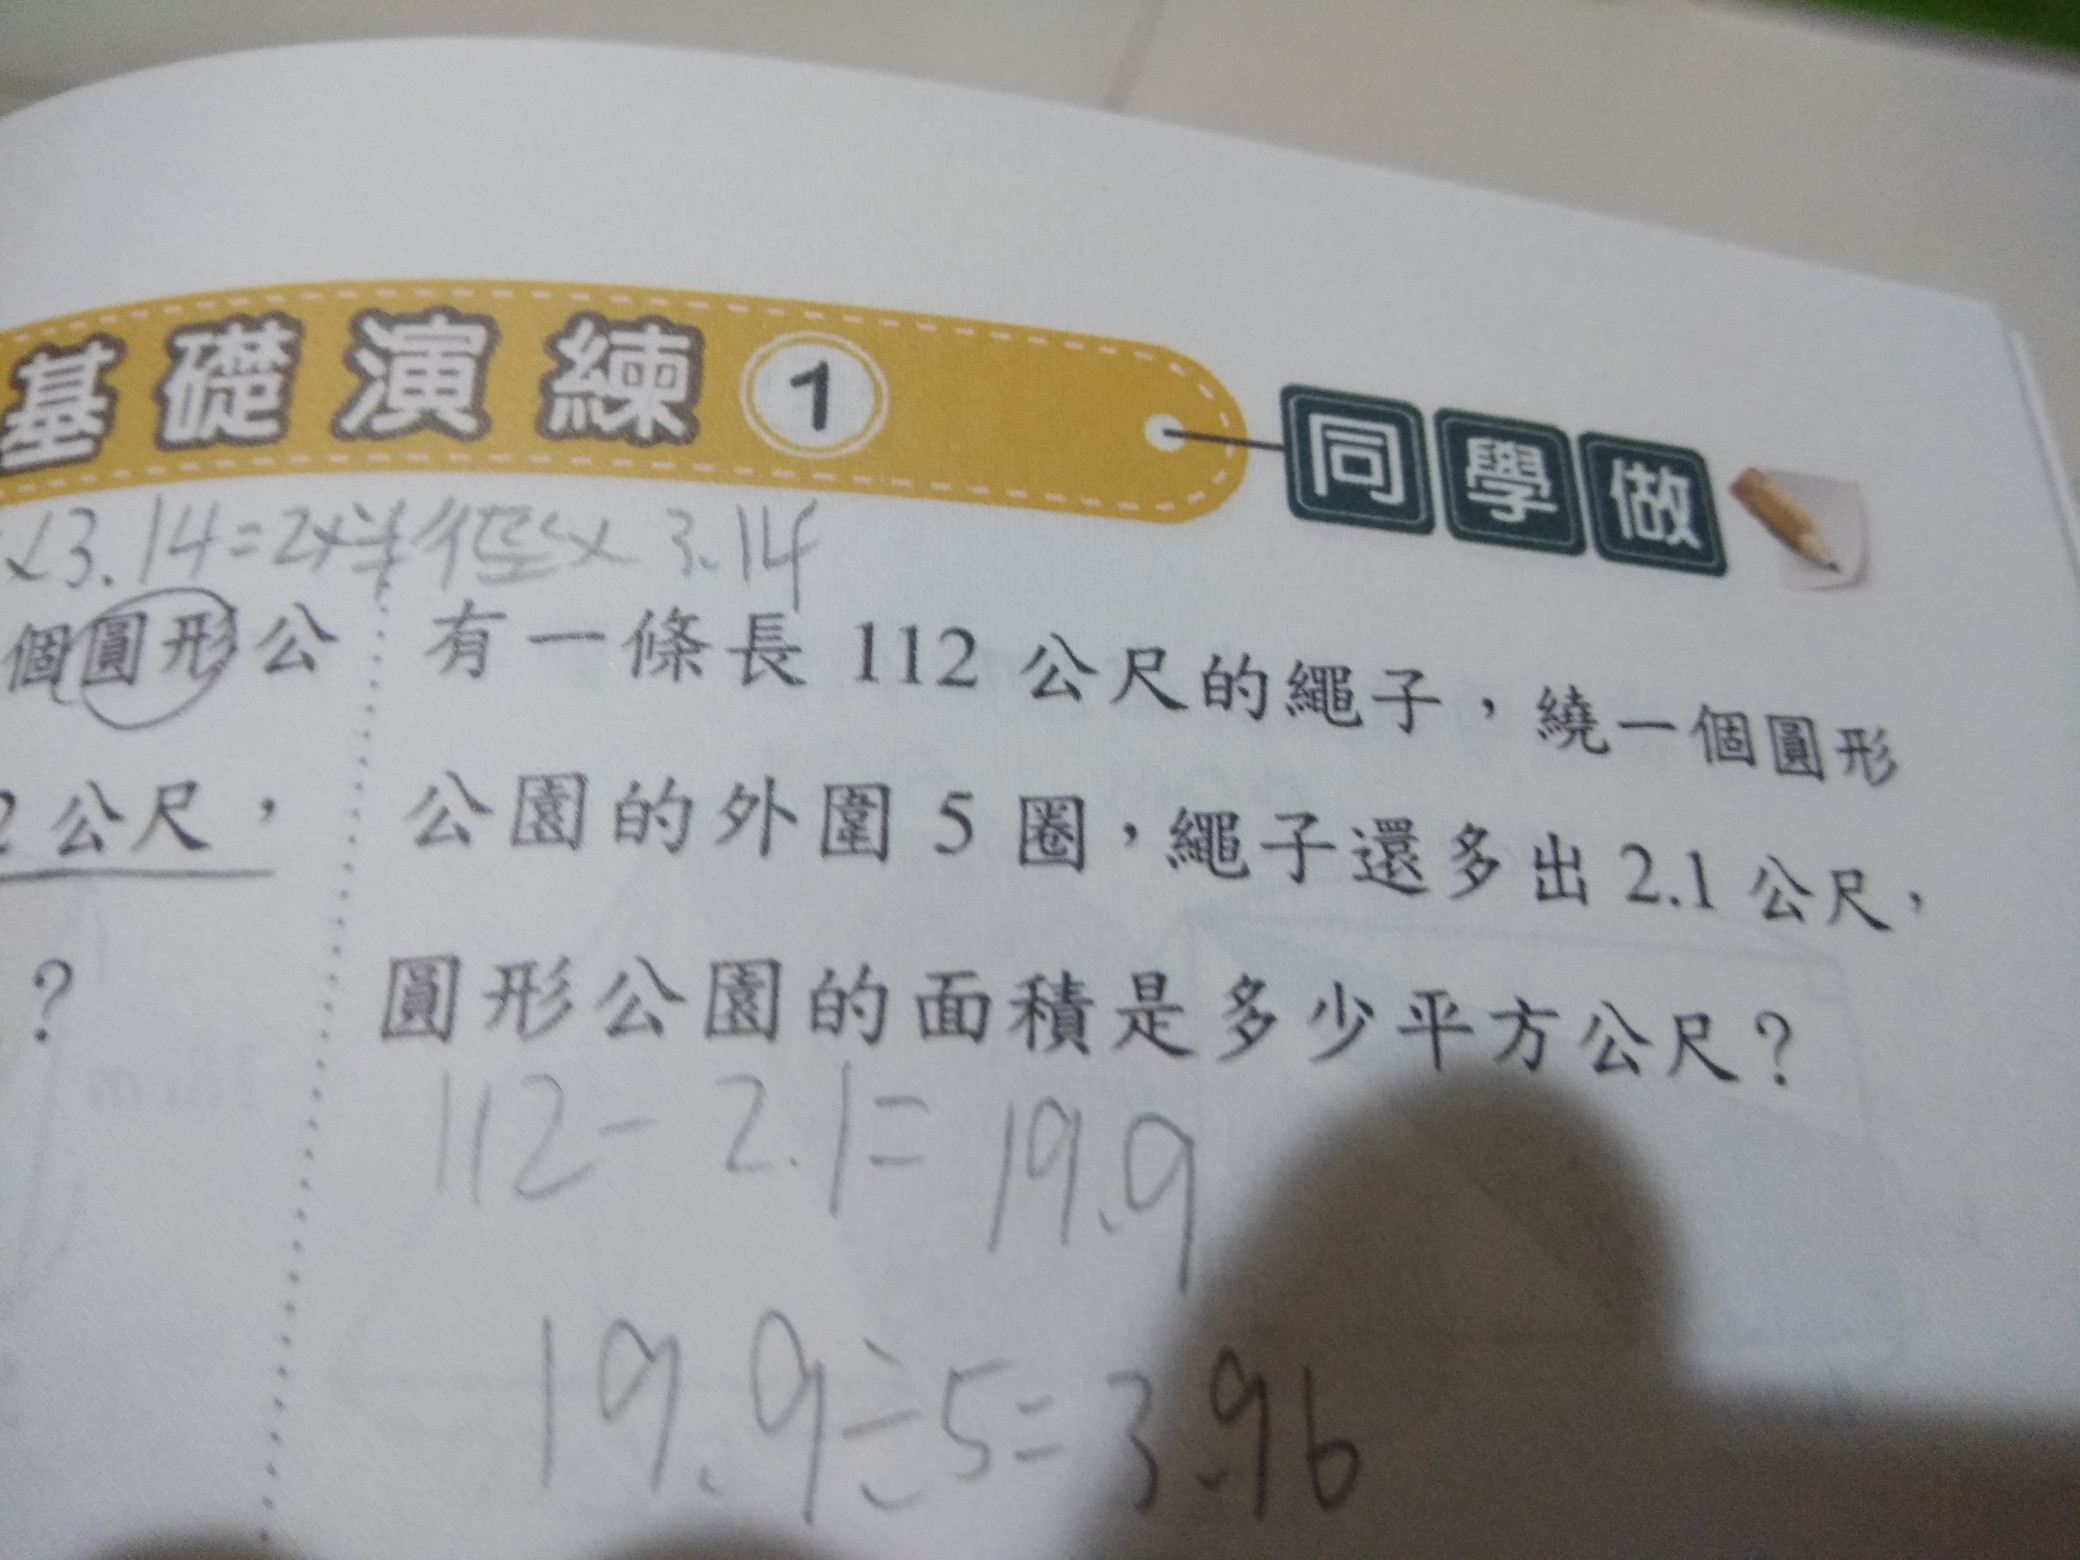 基礎演練 1 同學做
×3.14=2×半徑×3.14
個圓形公
2公尺，
？
有一條長 112 公尺的繩子，繞一個圓形
公園的外圍 5 圈，繩子還多出 2.1 公尺，
圓形公園的面積是多少平方公尺？
112-2.1=19.9
19.9÷5=3.96